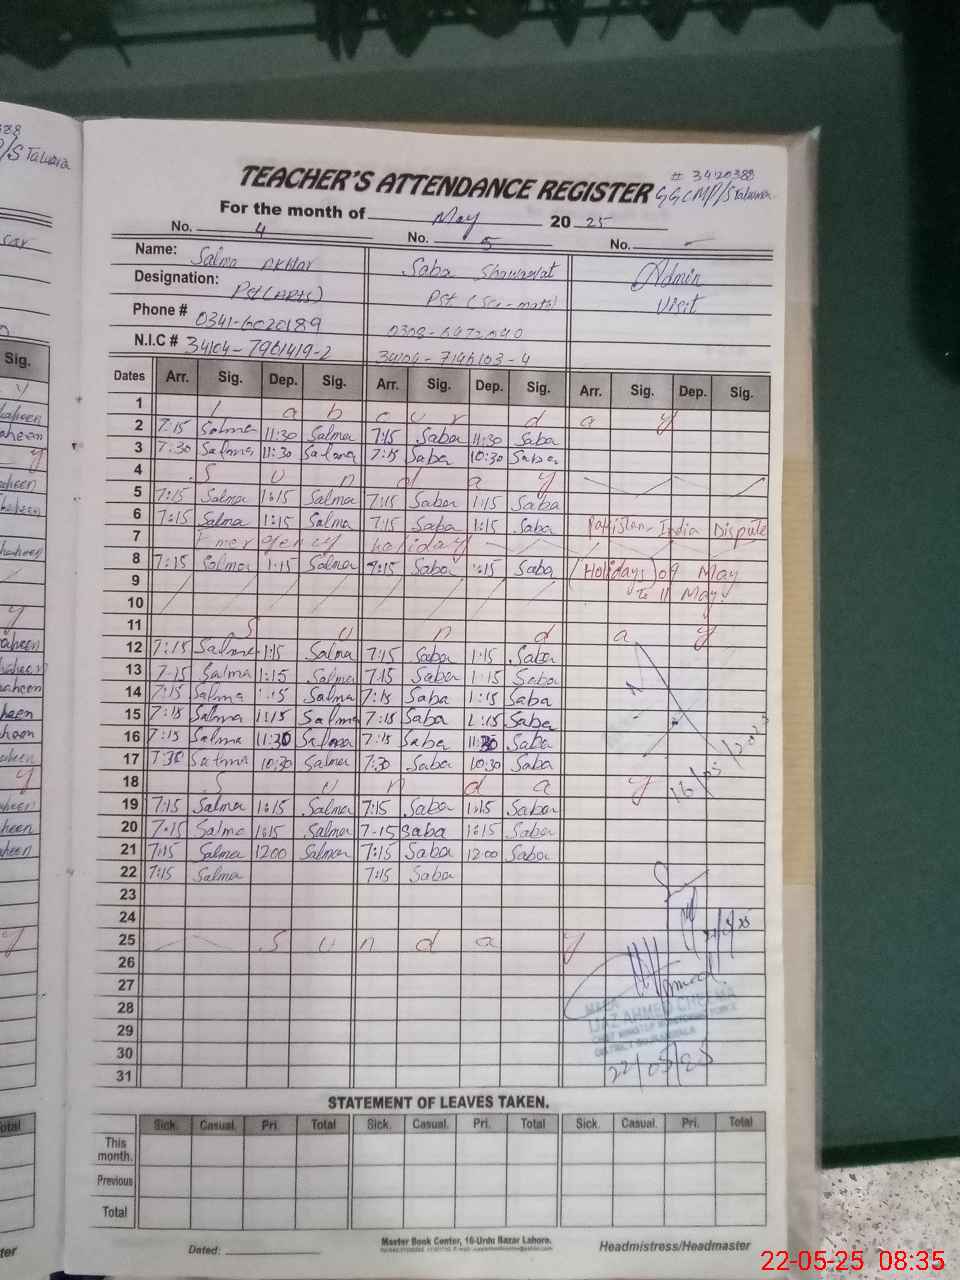 # 3420388
TEACHER'S ATTENDANCE REGISTER
For the month of May 20 25
No. 4 No. 5 No. -
Name: Salma Akhtar Saba Shawaiat Admin
Designation: Pst (ARTS) Pst (Sci-math) Visit
Phone # 0341-6020189
N.I.C # 34104-7961419-2 34104-7146103-4
Dates Arr. Sig. Dep. Sig. Arr. Sig. Dep. Sig. Arr. Sig. Dep. Sig.
1 l a b o u r d a y
2 7:15 Salma 11:30 Salma 7:15 Saba 11:30 Saba
3 7:30 Salma 11:30 Salma 7:15 Saba 10:30 Saba
4 S u n d a y
5 7:15 Salma 1:15 Salma 7:15 Saba 1:15 Saba
6 7:15 Salma 1:15 Salma 7:15 Saba 1:15 Saba Pakistan-India Dispute
7 Emergency holiday
8 7:15 Salma 1:15 Salma Saba Saba (Holidays) 09 May
9 To 11 May.
10
11 S u n d a y
12 7:15 Salma 1:15 Salma 7:15 Saba 1:15 Saba
13 7-15 Salma 1:15 Salma 7:15 Saba 1:15 Saba
14 7:15 Salma 1:15 Salma 7:15 Saba 1:15 Saba
15 7:15 Salma 1:15 Salma 7:15 Saba 1:15 Saba
16 7:15 Salma 11:30 Salma 7:15 Saba 11:30 Saba
17 7:30 Salma 10:30 Salma 7:30 Saba 10:30 Saba
18 S u n d a y
16/05/2025
19 7:15 Salma 1:15 Salma 7:15 Saba 1:15 Saba
20 7:15 Salma 1:15 Salma 7-15 Saba 1:15 Saba
21 7:15 Salma 1200 Salma 7:15 Saba 1200 Saba
22 7:15 Salma 7:15 Saba
23
24
25 S u n d a y
26
27
28
29
30
31
22/05/25
STATEMENT OF LEAVES TAKEN.
Sick. Casual. Pri. Total Sick. Casual. Pri. Total Sick. Casual. Pri. Total
This month.
Previous
Total
Dated:
Master Book Center, 16-Urdu Bazar Lahore.
Headmistress/Headmaster
22-05-25 08:35